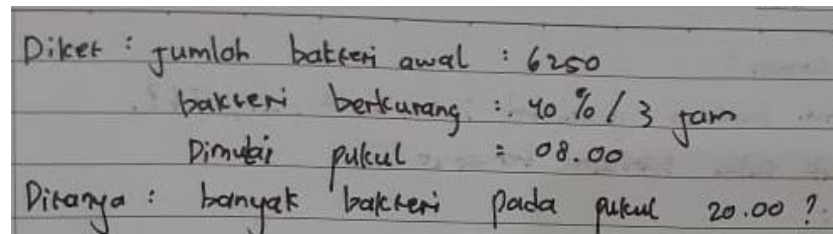 Diket : jumlah bakteri awal : 6250
bakteri berkurang : 40 % / 3 jam
Dimulai pukul : 08.00
Ditanya : banyak bakteri pada pukul 20.00 ?